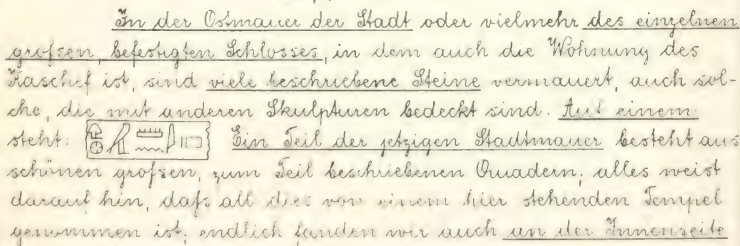 In der Ostmauer der Stadt oder vielmehr des einzelnen
grofsen, befestigten Schlosses, in dem auch die Wohnung des
Kaschef ist, sind viele beschriebene Steine vermauert, auch sol-
che, die mit anderen Skulpturen bedeckt sind. Auf einem
steht: Ein Teil der jetzigen Stadtmauer besteht aus
schönen grofsen, zum Teil beschriebenen Quadern; alles weist
darauf hin, dafs all dies von einem hier stehenden Tempel
genommen ist; endlich fanden wir auch an der Innenseite